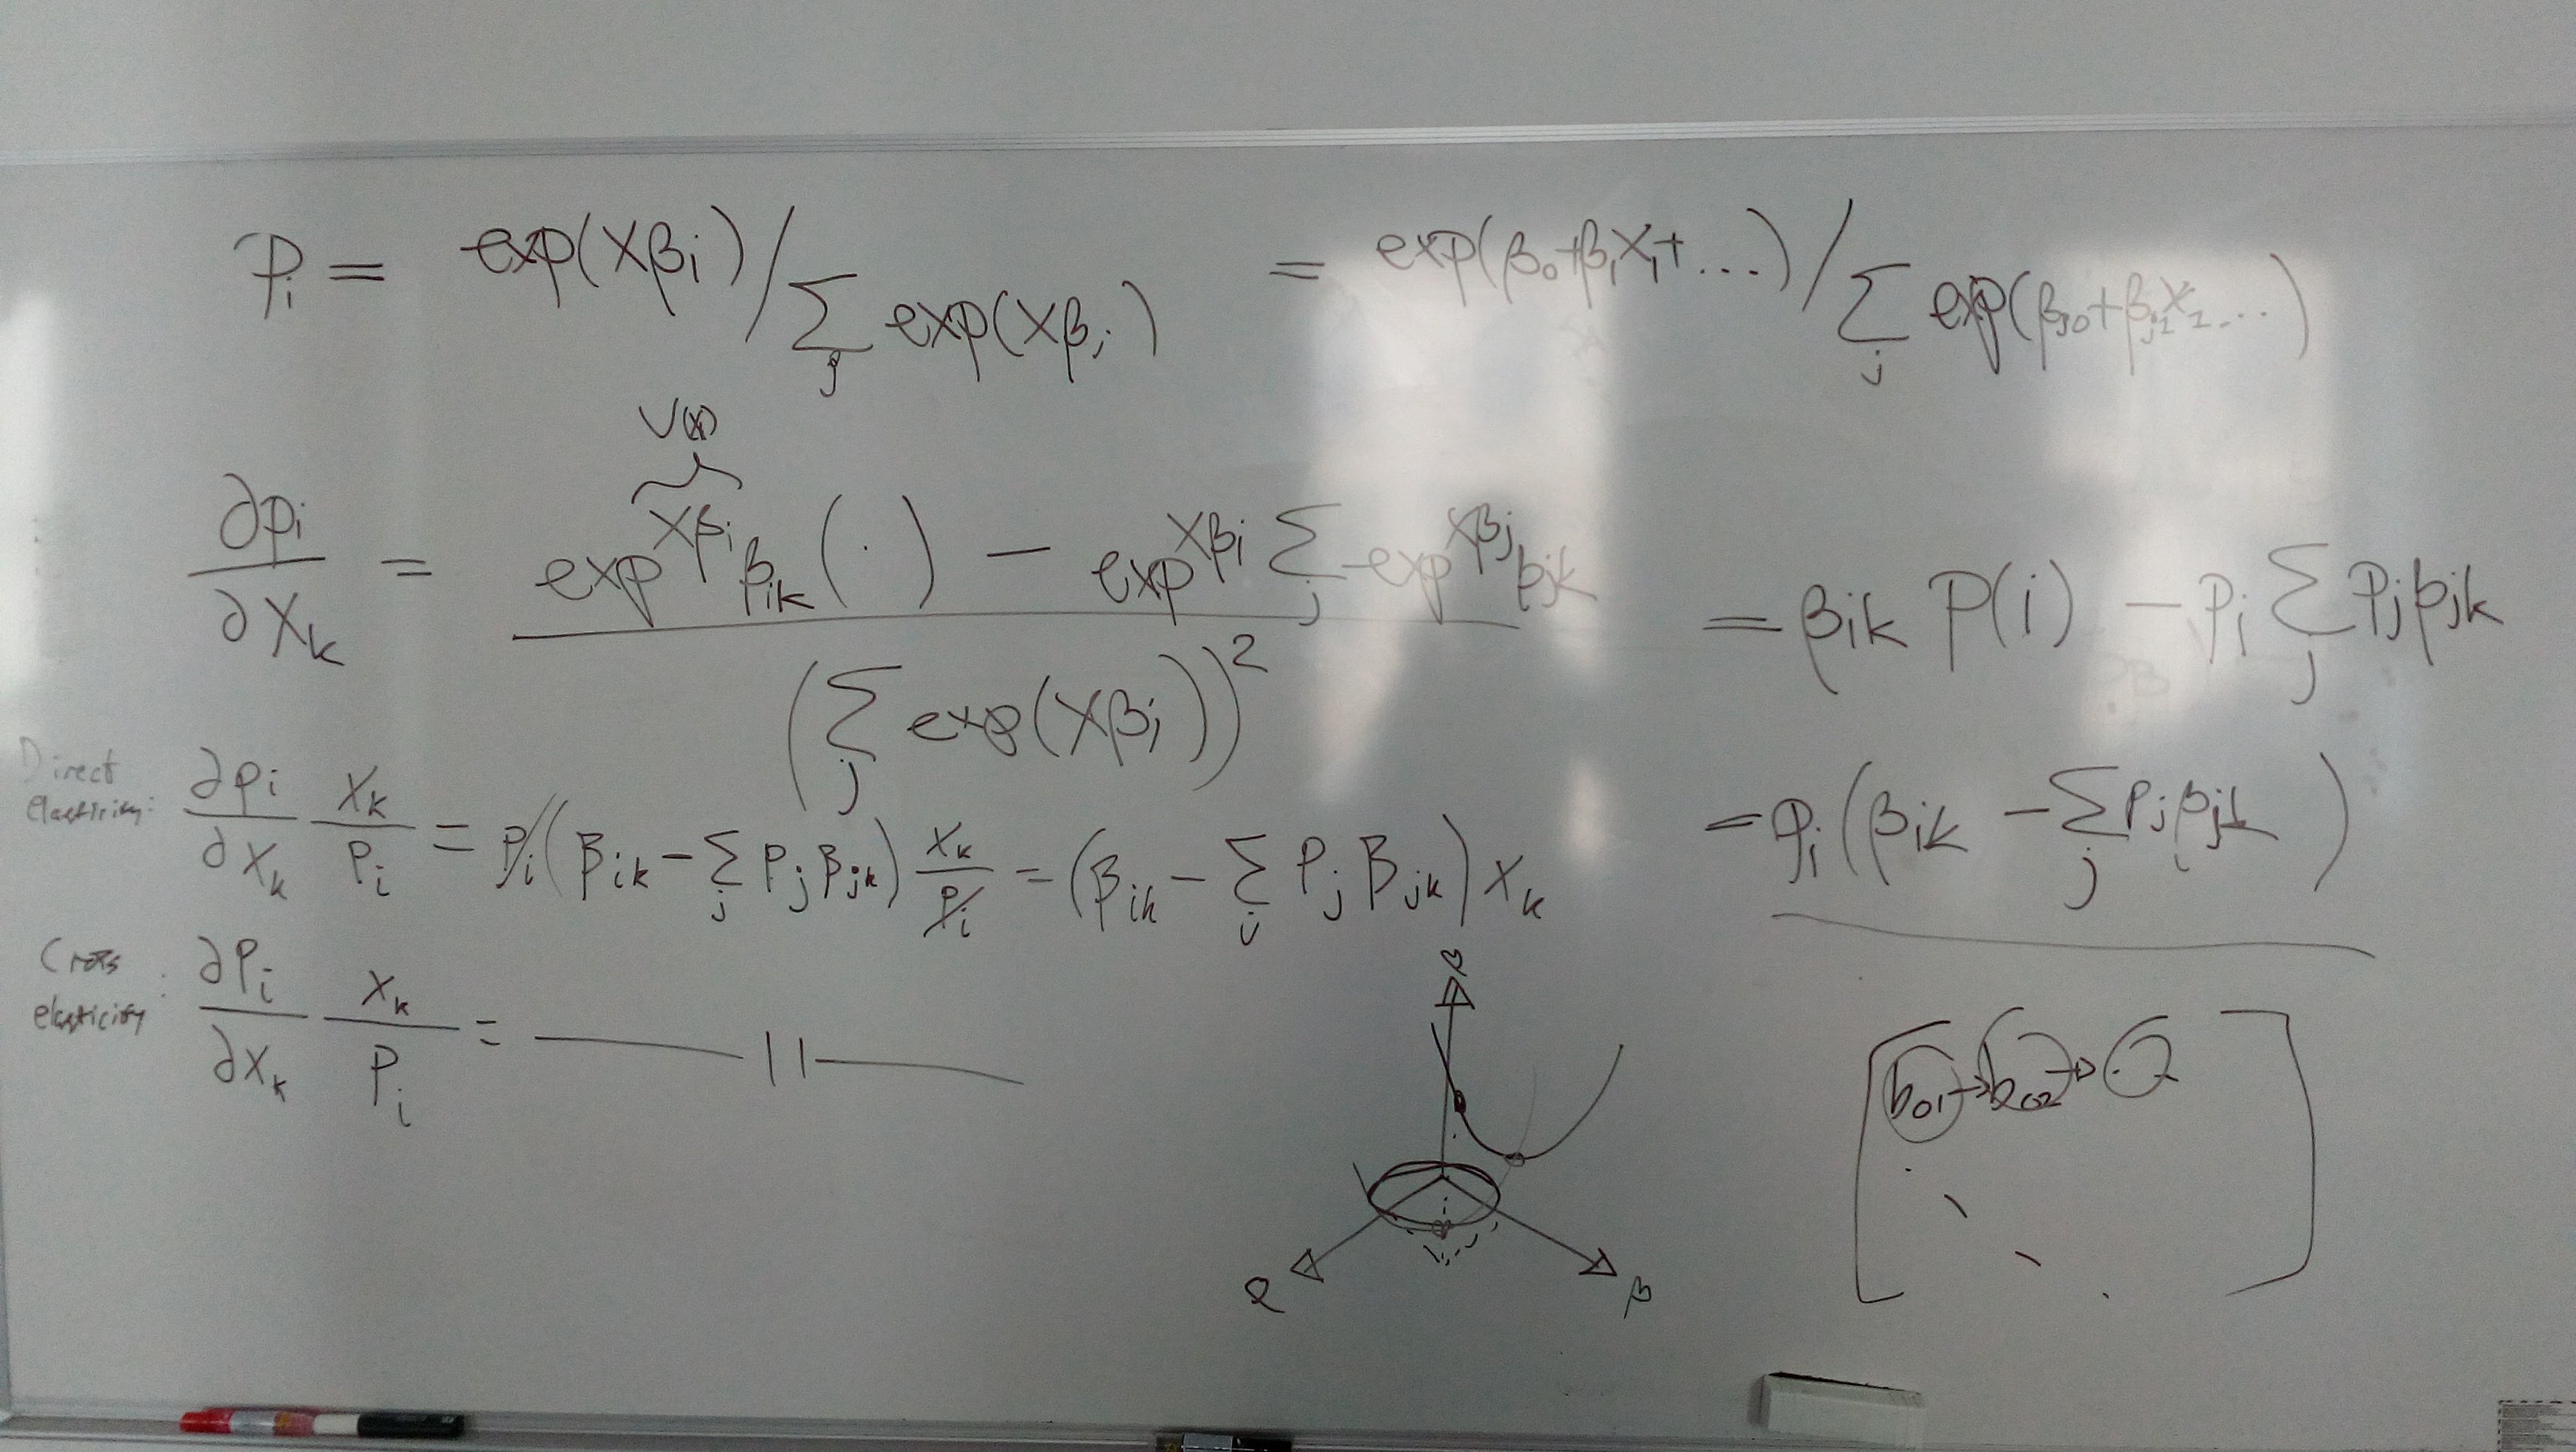 P_i = exp(Xβ_i) / Σ_j exp(Xβ_j) = exp(β_0 + β_1 X_1 + ...) / Σ_j exp(β_j0 + β_j1 X_1 ...)
V(x)
∂p_i / ∂X_k = (exp^{Xβ_i} β_ik (·) − exp^{Xβ_i} Σ_j exp^{Xβ_j} β_jk) / (Σ_j exp(Xβ_j))^2 = β_ik P(i) − P_i Σ_j P_j β_jk
= P_i (β_ik − Σ_j P_j β_jk)
Direct elasticity: ∂p_i / ∂X_k X_k / P_i = P_i (β_ik − Σ_j P_j β_jk) X_k / P_i = (β_ik − Σ_j P_j β_jk) X_k
Cross elasticity: ∂P_i / ∂X_k X_k / P_i = —— 11 ——
β
β
[ b_01 → b_02 → . ]